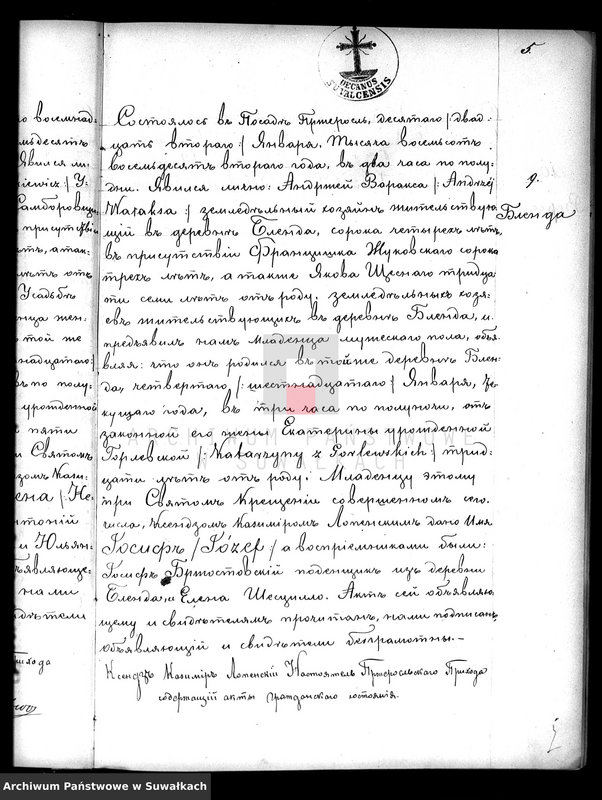 DECANUS SUVALCENSIS
5.
9.
Бленда
Состоялось въ Посадѣ Пржеросль, десятаго /:двад-
цать втораго:/ Января, Тысяча восемьсотъ
восемьдесятъ втораго года, въ два часа по полу-
дни. Явился лично: Андржей Воракса /: Andrzej
Waraksa :/ земледѣльный хозяинъ жительствую-
щій въ деревнѣ Бленда, сорока четырехъ лѣтъ,
въ присутствіи Францишка Жуковскаго сорока
трехъ лѣтъ, а также Якова Щеснаго тридца-
ти семи лѣтъ отъ роду, земледѣльныхъ хозя-
евъ жительствующихъ въ деревнѣ Бленда, и
предъявилъ намъ младенца мужескаго пола, объя-
вляя: что онъ родился въ той же деревнѣ Блен-
да, четвертаго /: шестнадцатаго :/ Января, те-
кущаго года, въ три часа по полуночи, отъ
законной его жены Екатерины урожденной
Горлевской /: Katarzyny z Gorlewskich :/ трид-
цати лѣтъ отъ роду. Младенцу этому
при Святомъ Крещеніи совершенномъ сего
числа, Ксендзомъ Казиміромъ Лопенскимъ дано имя
Іосифъ /Józef/ а воспріемниками были:
Іосифъ Бржостовскій поденщикъ изъ деревни
Бленда, и Елена Шесцилло. Актъ сей объявляю-
щему и свидѣтелямъ прочитанъ, нами подписанъ,
объявляющій и свидѣтели безграмотны.—
Ксендзъ Казиміръ Лопенскій Настоятель Пржеросльскаго Прихода
содержащій акты гражданскаго состоянія.
ARCHIWUM PAŃSTWOWE
W SUWAŁKACH
Archiwum Państwowe w Suwałkach